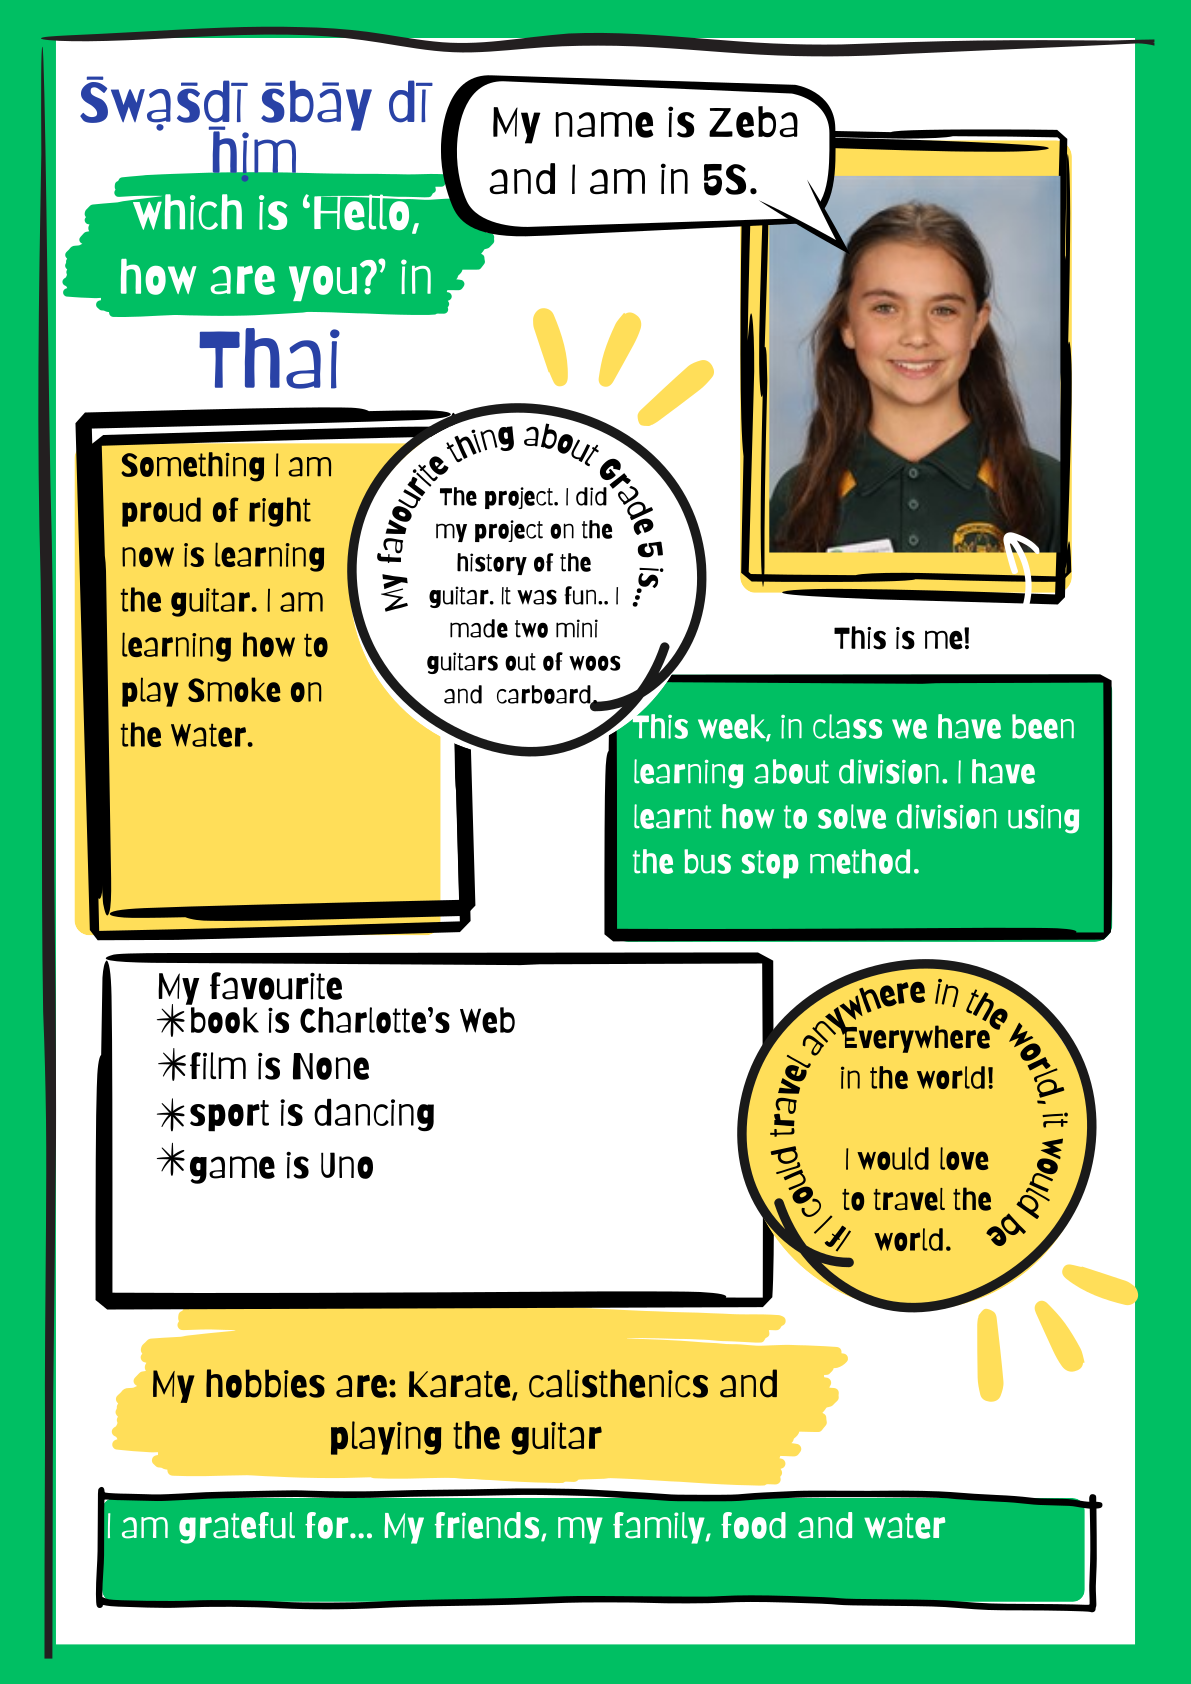 S̄wạs̄dī s̄bāy dī
h̄ịm
which is ‘Hello,
how are you?’ in
Thai
My name is Zeba
and I am in 5S.
This is me!
Something I am
proud of right
now is learning
the guitar. I am
learning how to
play Smoke on
the Water.
My favourite thing about Grade 5 is...
The project. I did
my project on the
history of the
guitar. It was fun.. I
made two mini
guitars out of woos
and carboard.
This week, in class we have been
learning about division. I have
learnt how to solve division using
the bus stop method.
My favourite
✳book is Charlotte’s Web
✳film is None
✳sport is dancing
✳game is Uno
If I could travel anywhere in the world, it would be
Everywhere
in the world!
I would love
to travel the
world.
My hobbies are: Karate, calisthenics and
playing the guitar
I am grateful for... My friends, my family, food and water